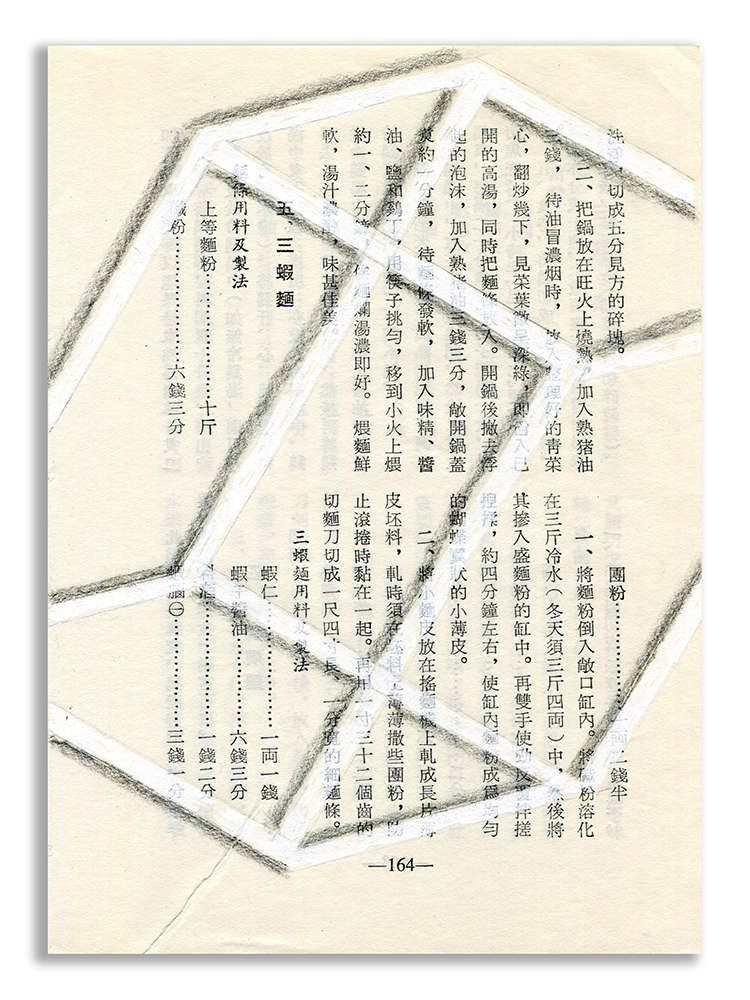 洗,切成五分見方的碎塊。
二、把鍋放在旺火上燒熱,加入熟猪油
三錢,待油冒濃烟時,放入整理好的青菜
心,翻炒幾下,見菜葉微呈深綠,即舀入已
開的高湯,同時把麵條放入。開鍋後撇去浮
起的泡沫,加入熟猪油三錢三分,敞開鍋蓋
煑約一分鐘,待麵條發軟,加入味精、醬
油、鹽和鷄丁,用筷子挑勻,移到小火上煨
約一、二分鐘,使麵爛湯濃即好。煨麵鮮
軟,湯汁濃,味甚佳美。
五 三蝦麵
麵條用料及製法
上等麵粉………………十斤
鹼粉………………六錢三分
團粉………………一両二錢半
一、將麵粉倒入敞口缸內。將鹼粉溶化
在三斤冷水(冬天須三斤四両)中,然後將
其摻入盛麵粉的缸中。再雙手使勁反覆拌搓
揑揉,約四分鐘左右,使缸內麵粉成爲勻勻
的蝴蝶翼狀的小薄皮。
二、將小麵皮放在搖麵機上軋成長片薄
皮坯料,軋時須在坯料上薄薄撒些團粉,防
止滾捲時黏在一起。再用一寸三十二個齒的
切麵刀切成一尺四寸長、一分寬的細麵條。
三蝦麵用料及製法
蝦仁………………一両一錢
蝦子醬油…………六錢三分
油………………一錢二分
蝦腦㊀……………三錢一分
—164—